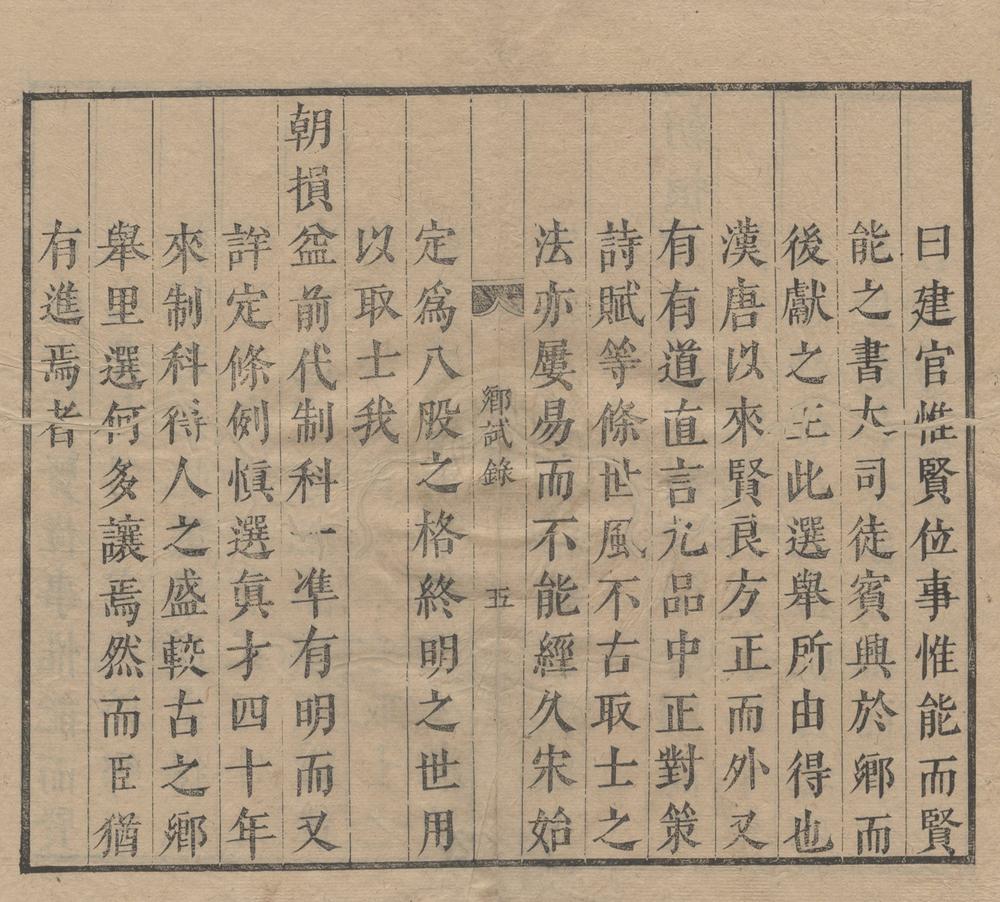 曰建官惟賢位事惟能而賢
能之書大司徒賓興於鄉而
後獻之王此選舉所由得也
漢唐以來賢良方正而外又
有有道直言九品中正對策
詩賦等條世風不古取士之
法亦屢易而不能經久宋始
鄉試錄 五
定爲八股之格終明之世用
以取士我
朝損益前代制科一凖有明而又
詳定條例愼選眞才四十年
來制科得人之盛較古之鄉
舉里選何多讓焉然而臣猶
有進焉者